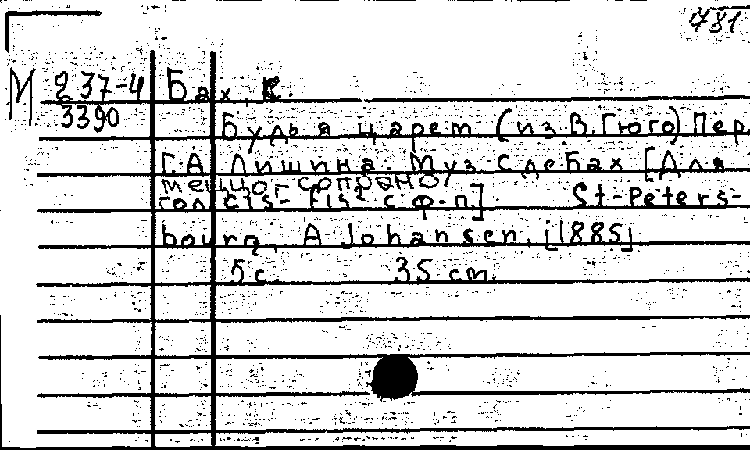 481
М 237-4 Бах, К.
3390
Будь я царем (из В. Гюго) Пер.
Г.А. Лишина. Муз. С де Бах [Для
меццо-сопрано/
гол. cis-fis² с ф-п] St-Peters-
bourg, A Johansen, [1885]
5 с. 35 cm.